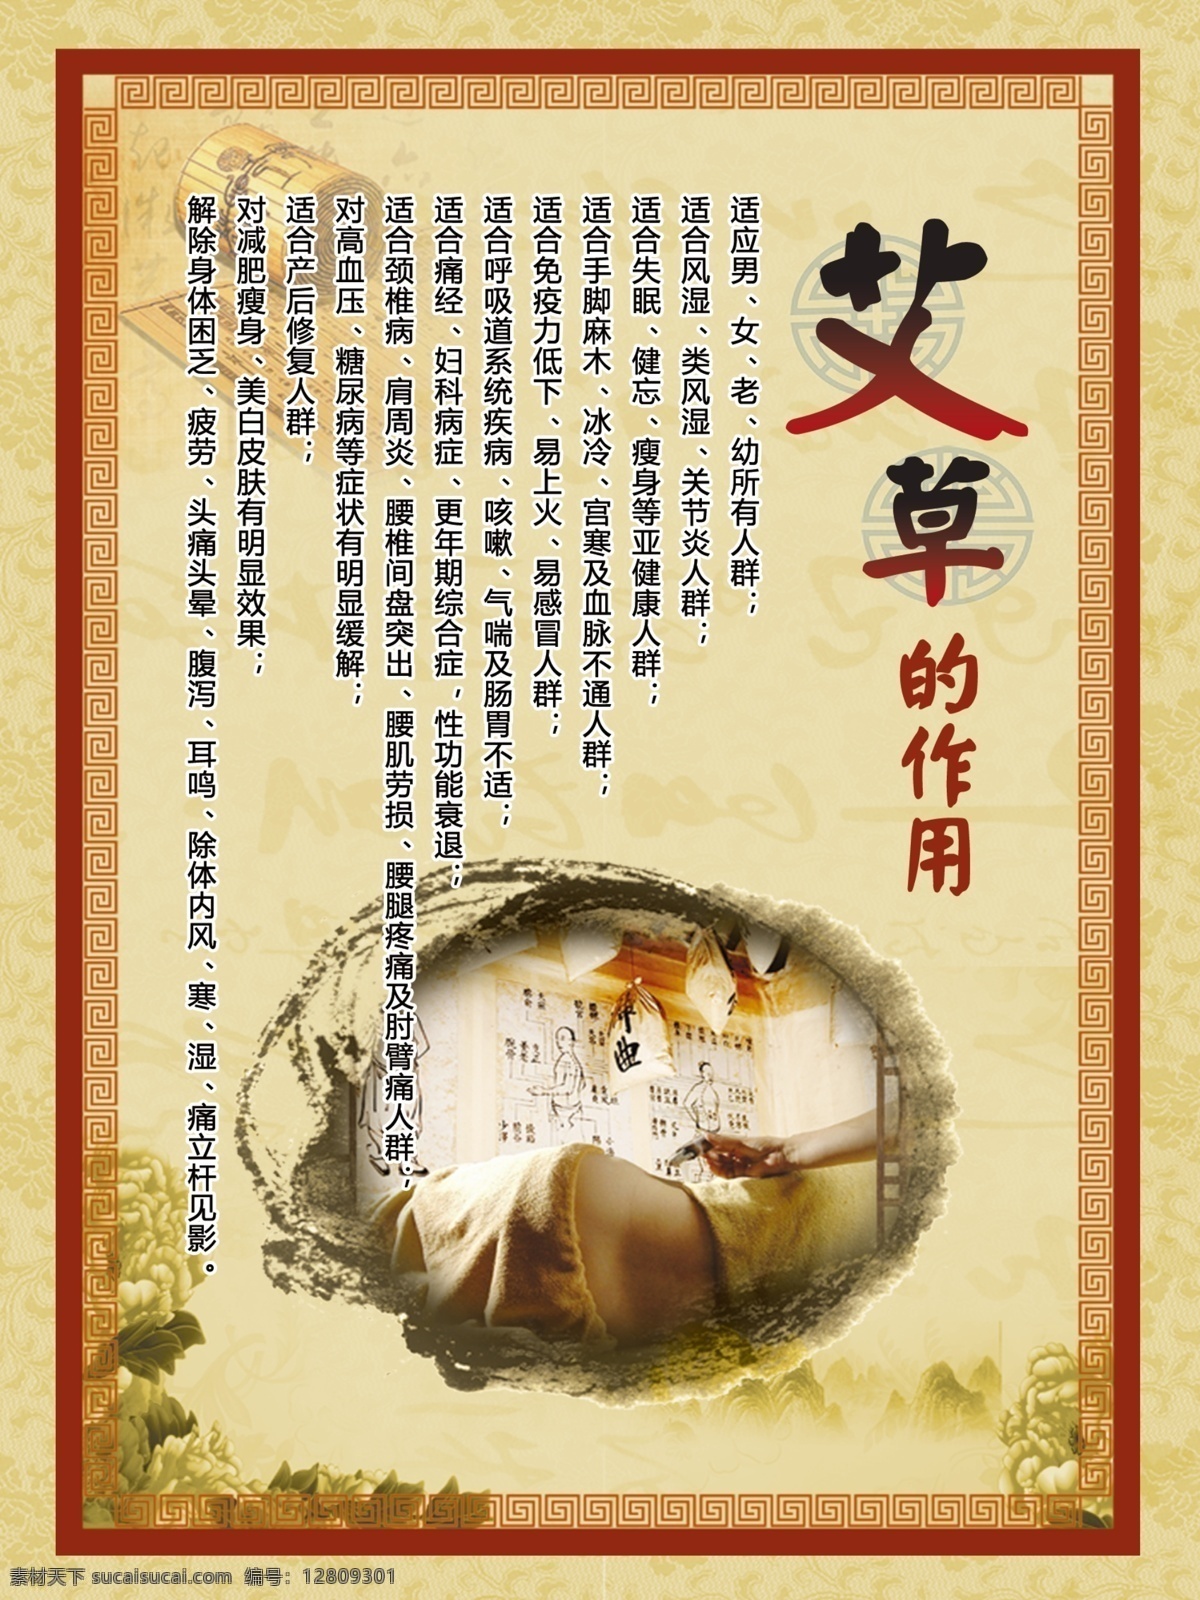 艾草的作用
适应男、女、老、幼所有人群；
适合风湿、类风湿、关节炎人群；
适合失眠、健忘、瘦身等亚健康人群；
适合手脚麻木、冰冷、宫寒及血脉不通人群；
适合免疫力低下、易上火、易感冒人群；
适合呼吸道系统疾病、咳嗽、气喘及肠胃不适；
适合痛经、妇科病症、更年期综合症，性功能衰退；
适合颈椎病、肩周炎、腰椎间盘突出、腰肌劳损、腰腿疼痛及肘臂痛人群；
对高血压、糖尿病等症状有明显缓解；
适合产后修复人群；
对减肥瘦身、美白皮肤有明显效果；
解除身体困乏、疲劳、头痛头晕、腹泻、耳鸣、除体内风、寒、湿、痛立杆见影。
素材天下 sucaisucai.com 编号：12809301